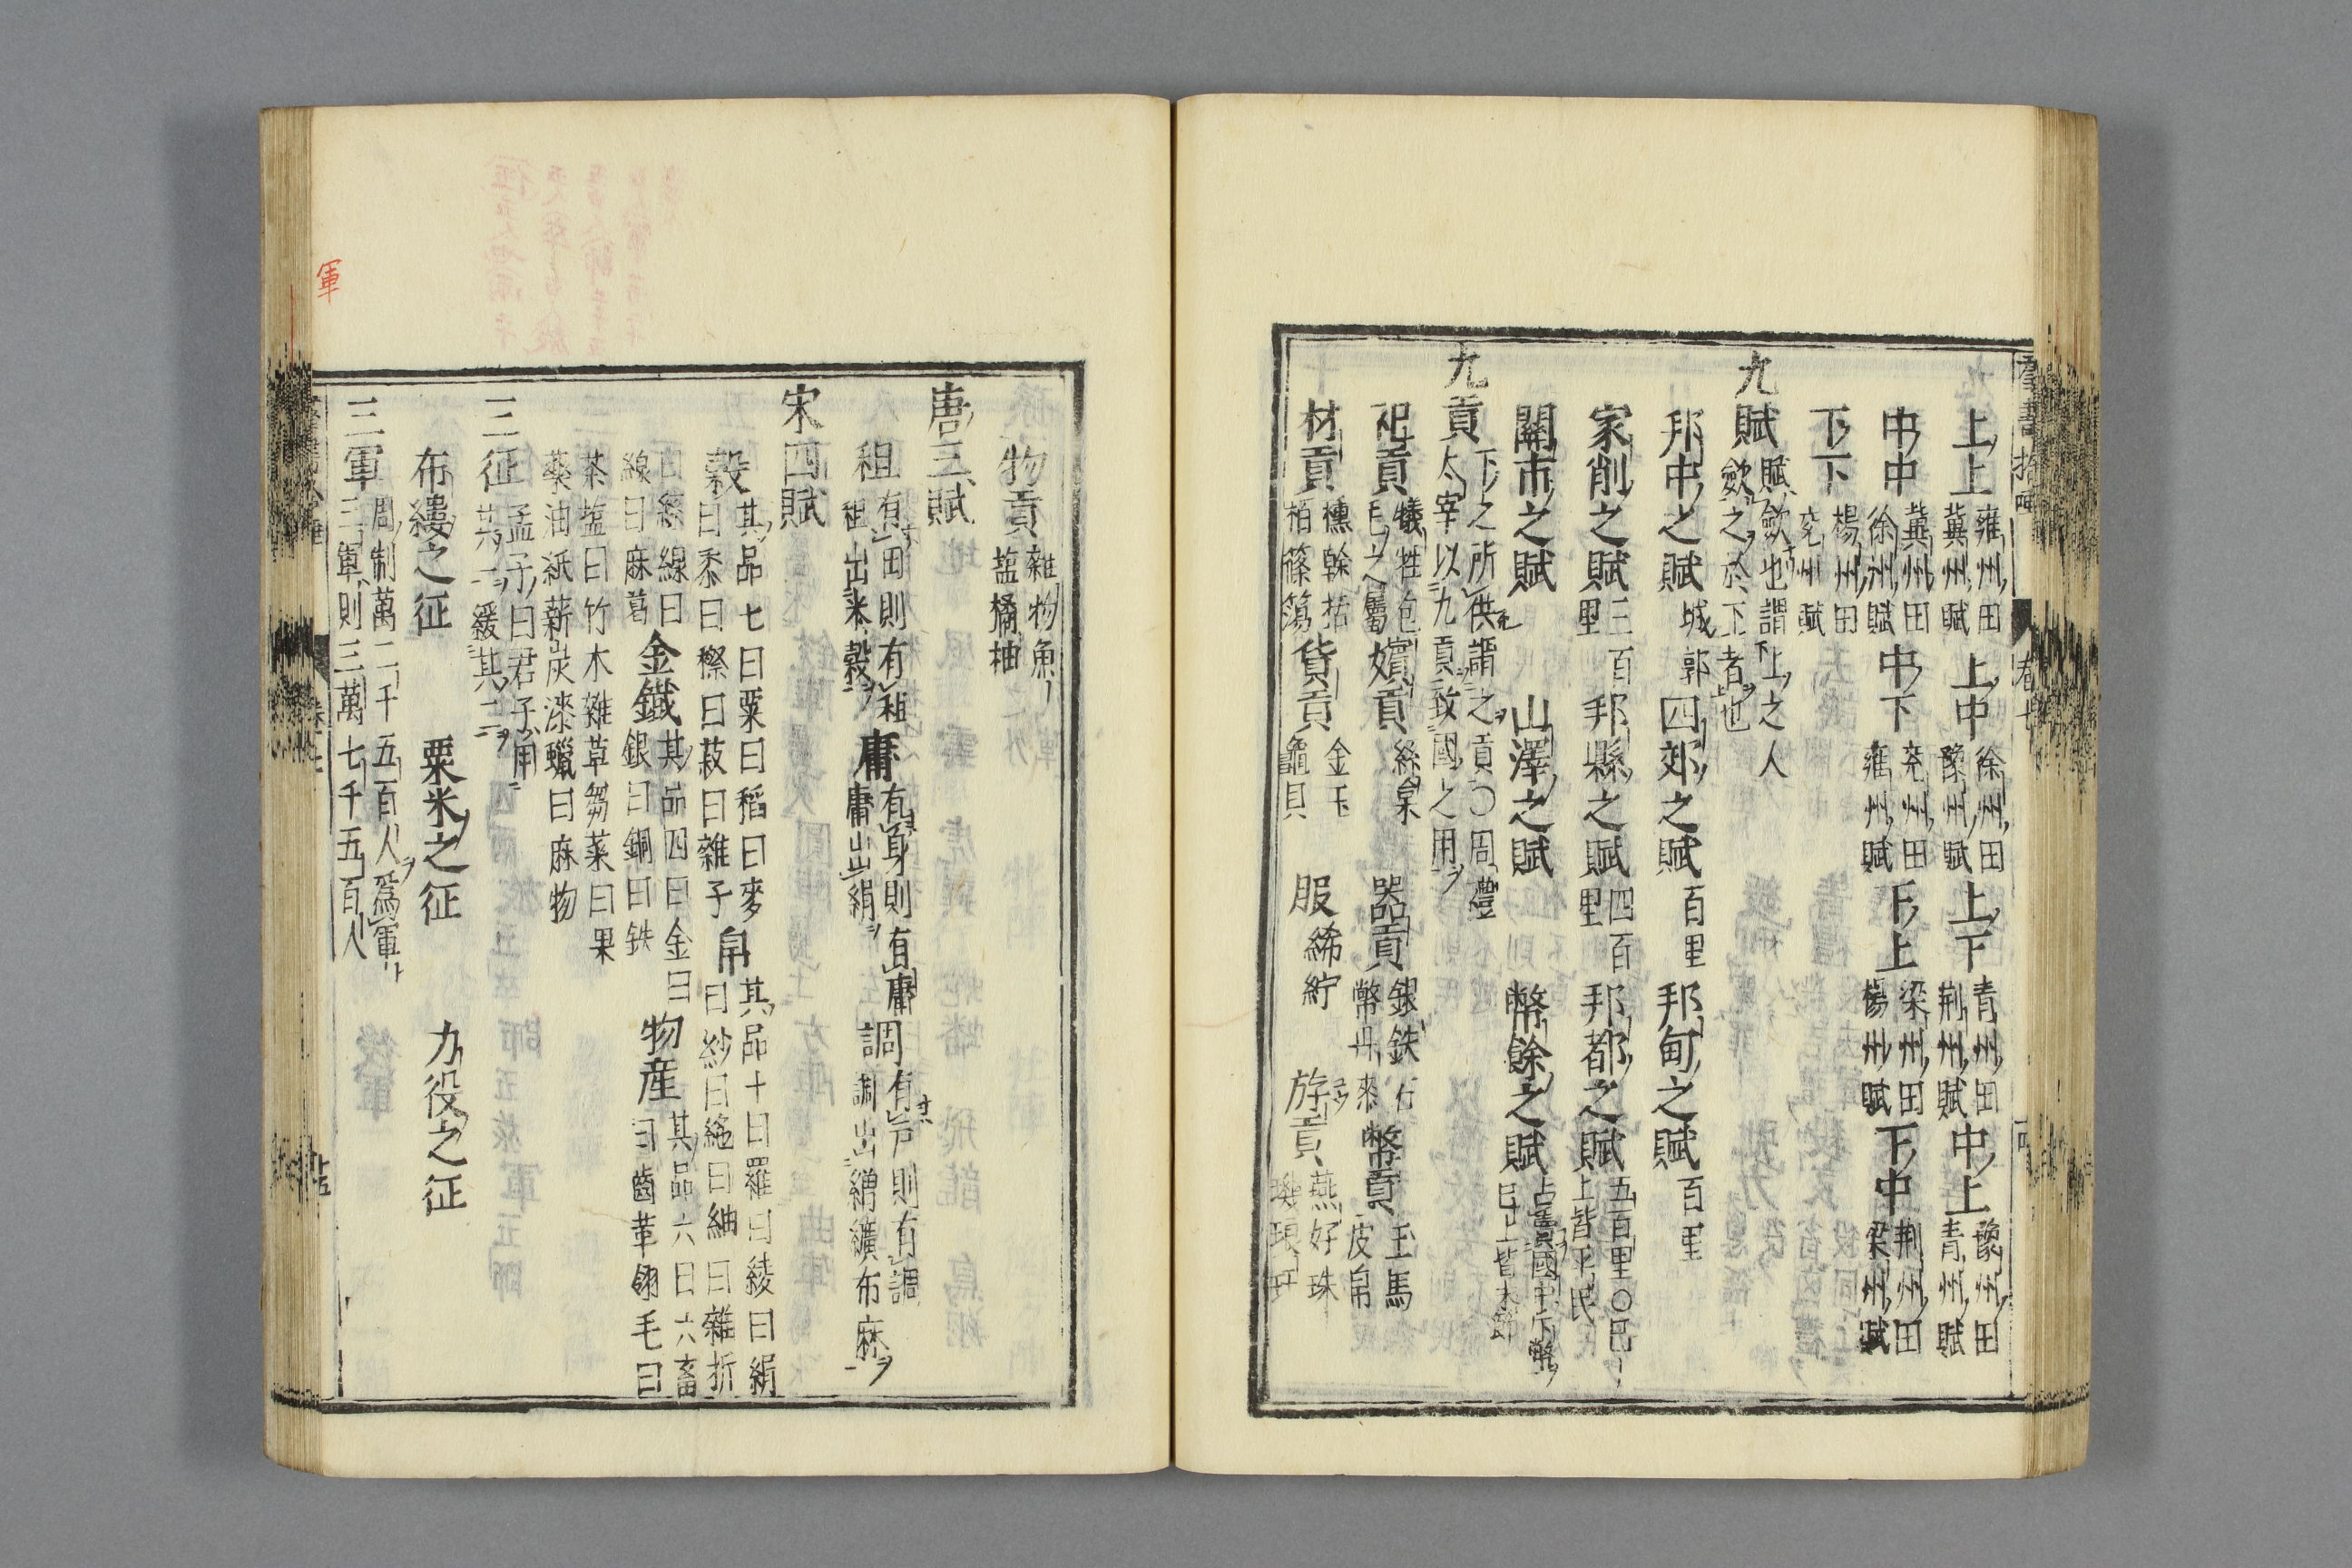 上上 雍州田 冀州賦 上中 徐州田 豫州賦 上下 青州田 荆州賦 中上 豫州田 青州賦
中中 冀州田 徐州賦 中下 兖州田 雍州賦 下上 梁州田 楊州賦 下中 荆州田 梁州賦
下下 楊州田 兖州賦
九賦 賦歛也謂上之人 歛之於下者也
邦中之賦 城郭 四郊之賦 百里 邦甸之賦 百里
家削之賦 三百里 邦縣之賦 四百里 邦都之賦 五百里〇已上皆平民
關市之賦 山澤之賦 幣餘之賦 占賣國中斥幣 已上皆末
九貢 下之所供謂之貢〇周禮 太宰以九貢致國之用
祀貢 犧牲包 毛之屬 嬪貢 絲枲 器貢 銀鉄石 幣丹㯃 幣貢 玉馬 皮帛
材貢 櫄榦栝 柏篠簜 貨貢 金玉 龜貝 服 絺紵 斿貢 燕好珠 璣琅玕
物貢 雜物魚 塩橘柚
唐三賦
租 有田則有租 租出米穀 庸 有身則有庸 庸出絹 調 有戸則有調 調出繒纊布麻
宋四賦
穀 其品七曰粟曰稻曰麥 曰黍曰穄曰菽曰雜子 帛 其品十曰羅曰綾曰絹 曰紗曰絁曰紬曰雜折
曰絲線曰 線曰麻葛 金鐵 其品四曰金曰 銀曰銅曰鉄 物産 其品六曰六畜 曰齒革翎毛曰
茶塩曰竹木雜草芻菜曰果 藥油紙薪炭漆蠟曰麻物
三征 孟子曰君子用 其一緩其二
布縷之征 粟米之征 力役之征
三軍 周制萬二千五百人爲軍 三軍則三萬七千五百人
軍